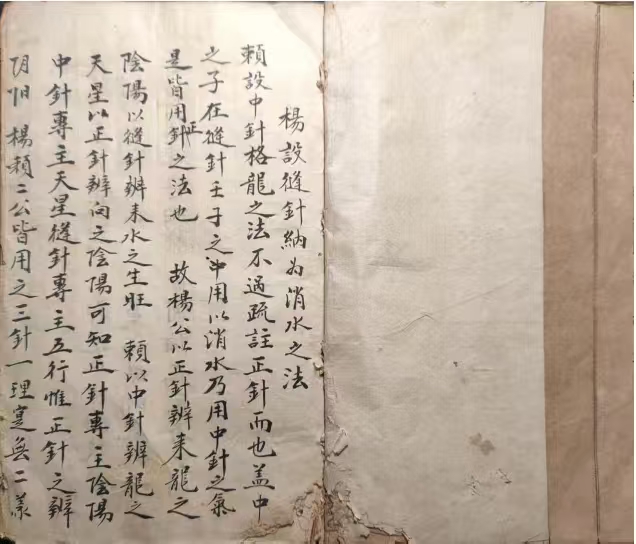 楊設縫針納为消水之法
賴設中針格龍之法不過疏註正針而也盖中
之子在縫針壬子之中用以消水乃用中針之氣
是皆用正針之法也 故楊公以正針辨来龍之
陰陽以縫針辨来水之生旺 賴以中針辨龍之
天星以正針辨向之陰陽可知正針專主陰陽
中針專主天星縫針專主五行惟正針之辨
阴阳 楊賴二公皆用之三針一理寔無二